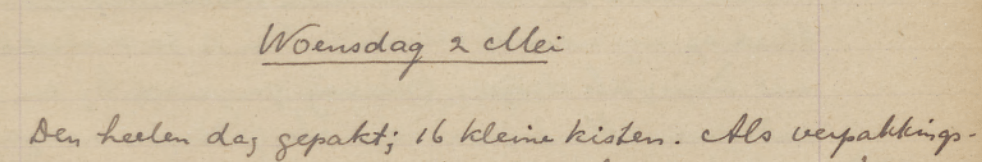 Woensdag 2 Mei
Den heelen dag gepakt; 16 kleine kisten. Als verpakkings-